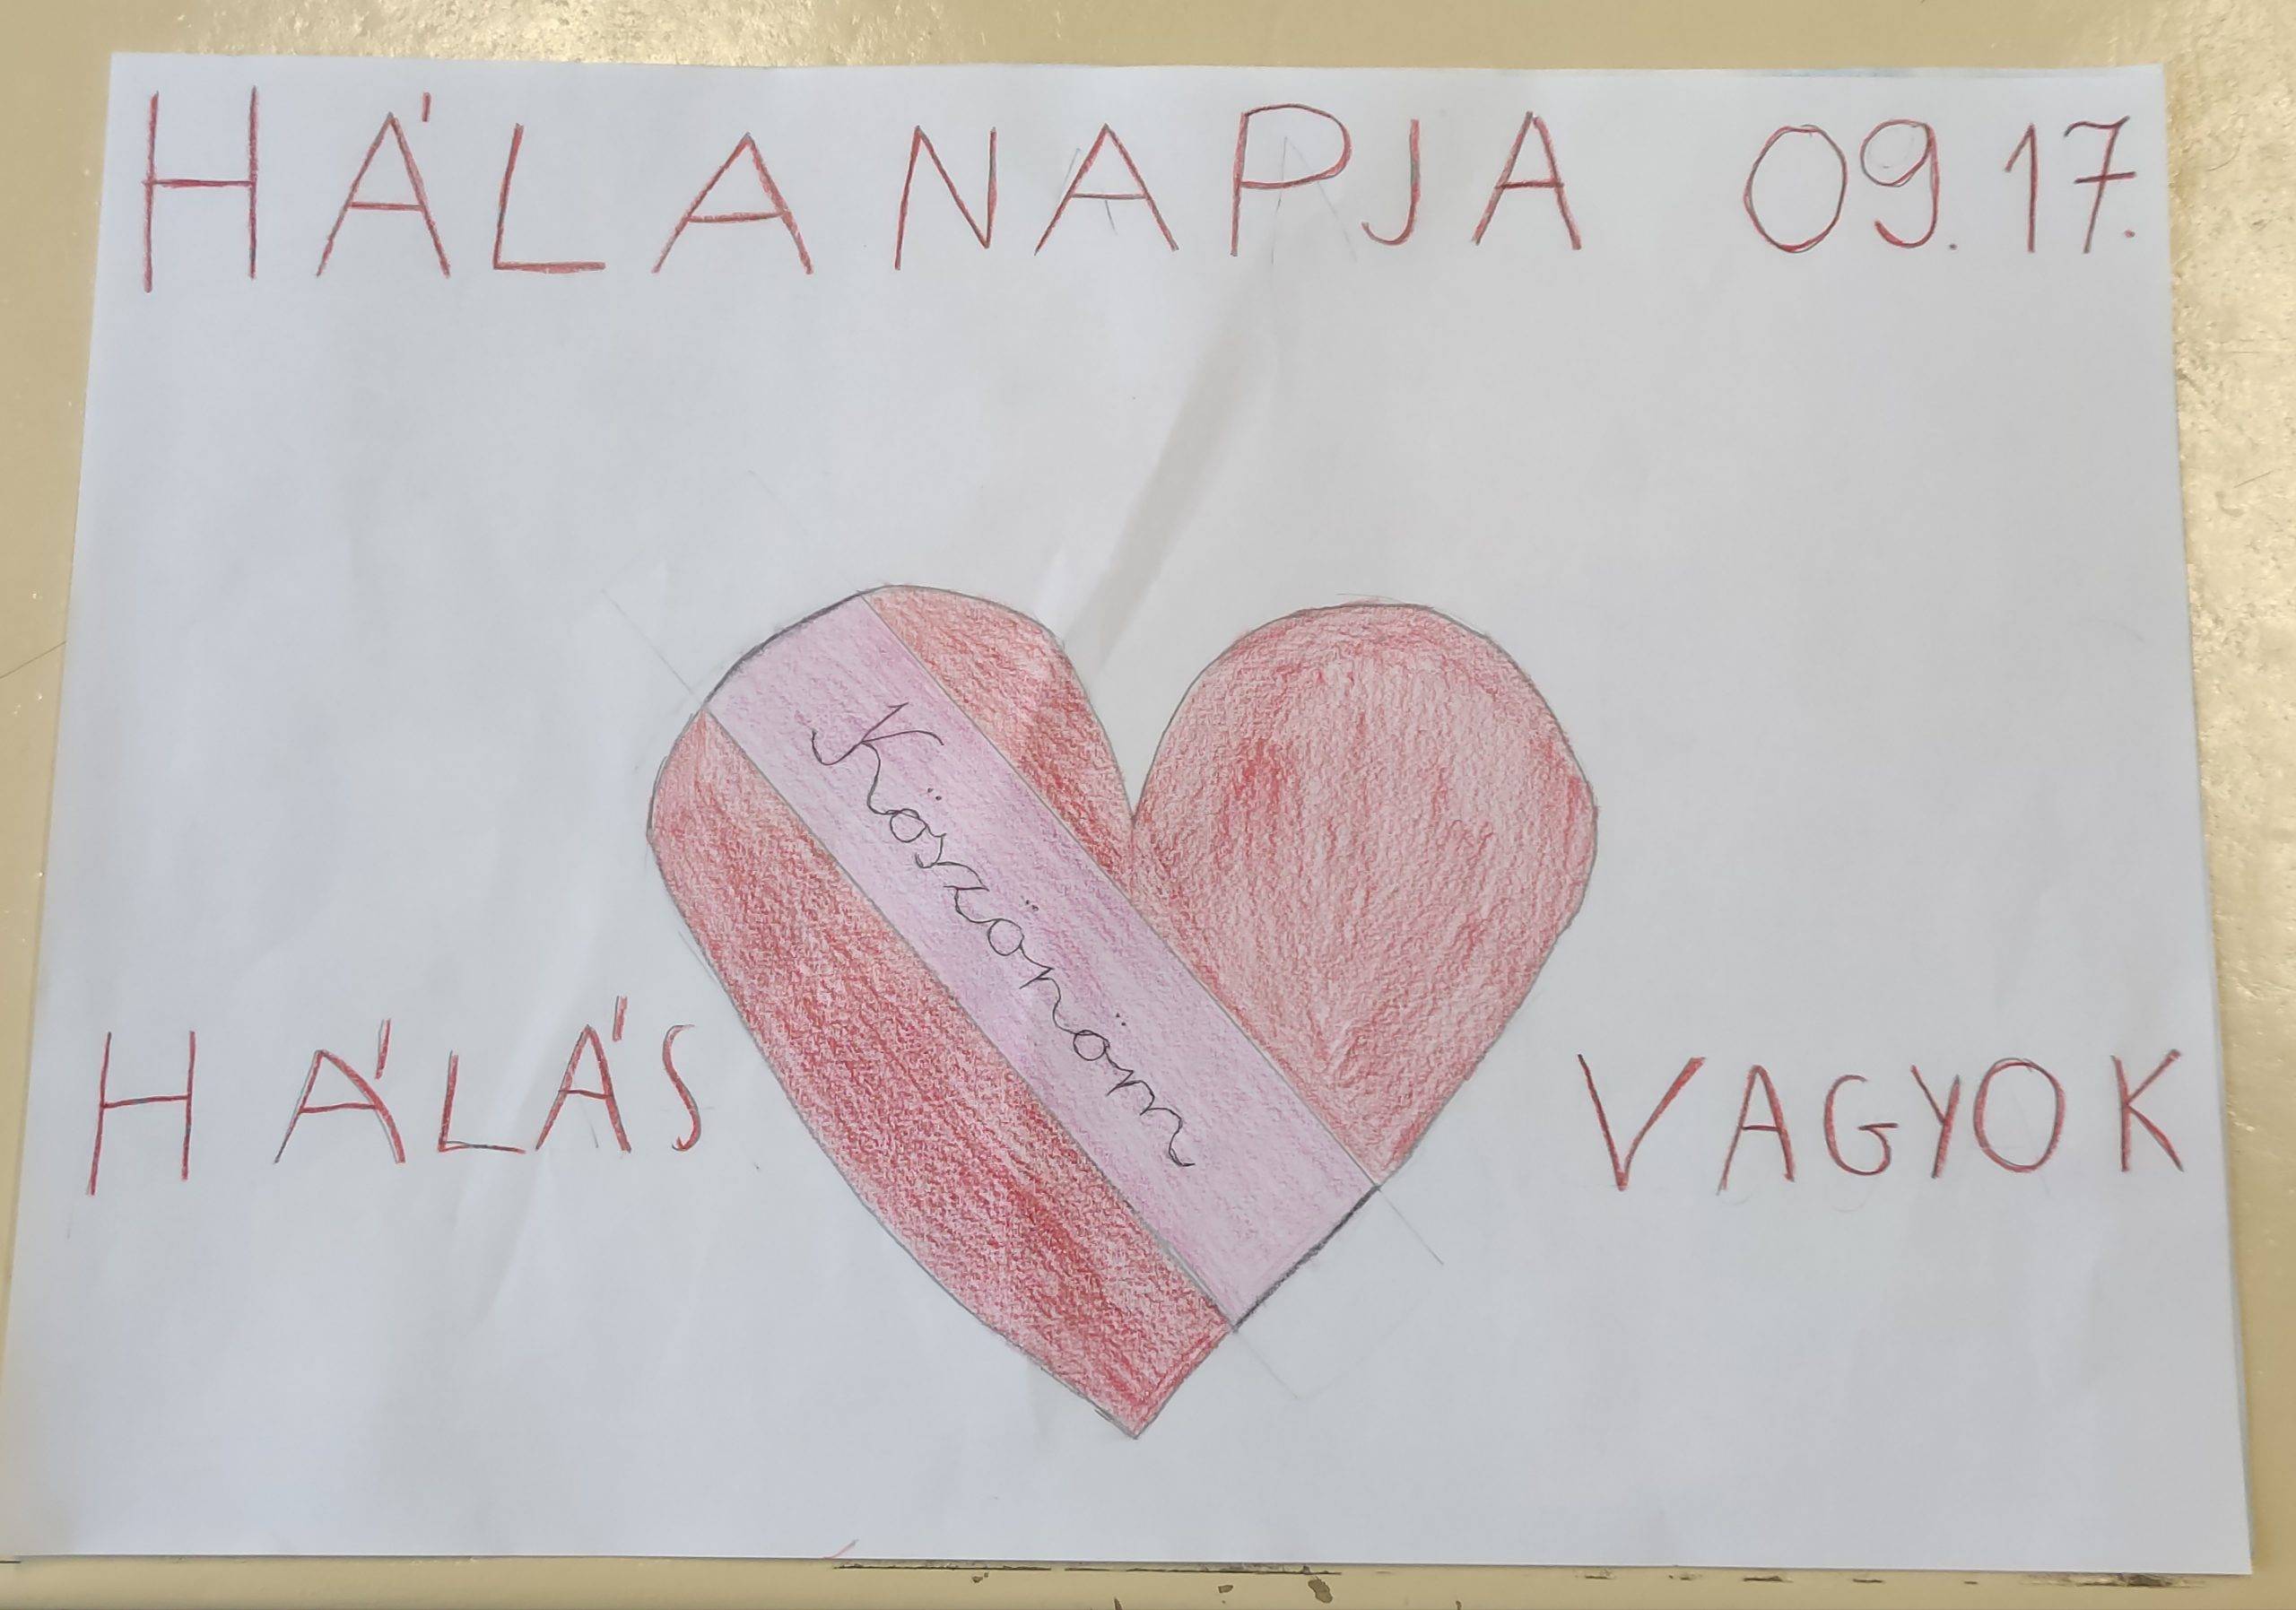 HÁLA NAPJA 09.17.
Köszönöm
HÁLÁS VAGYOK